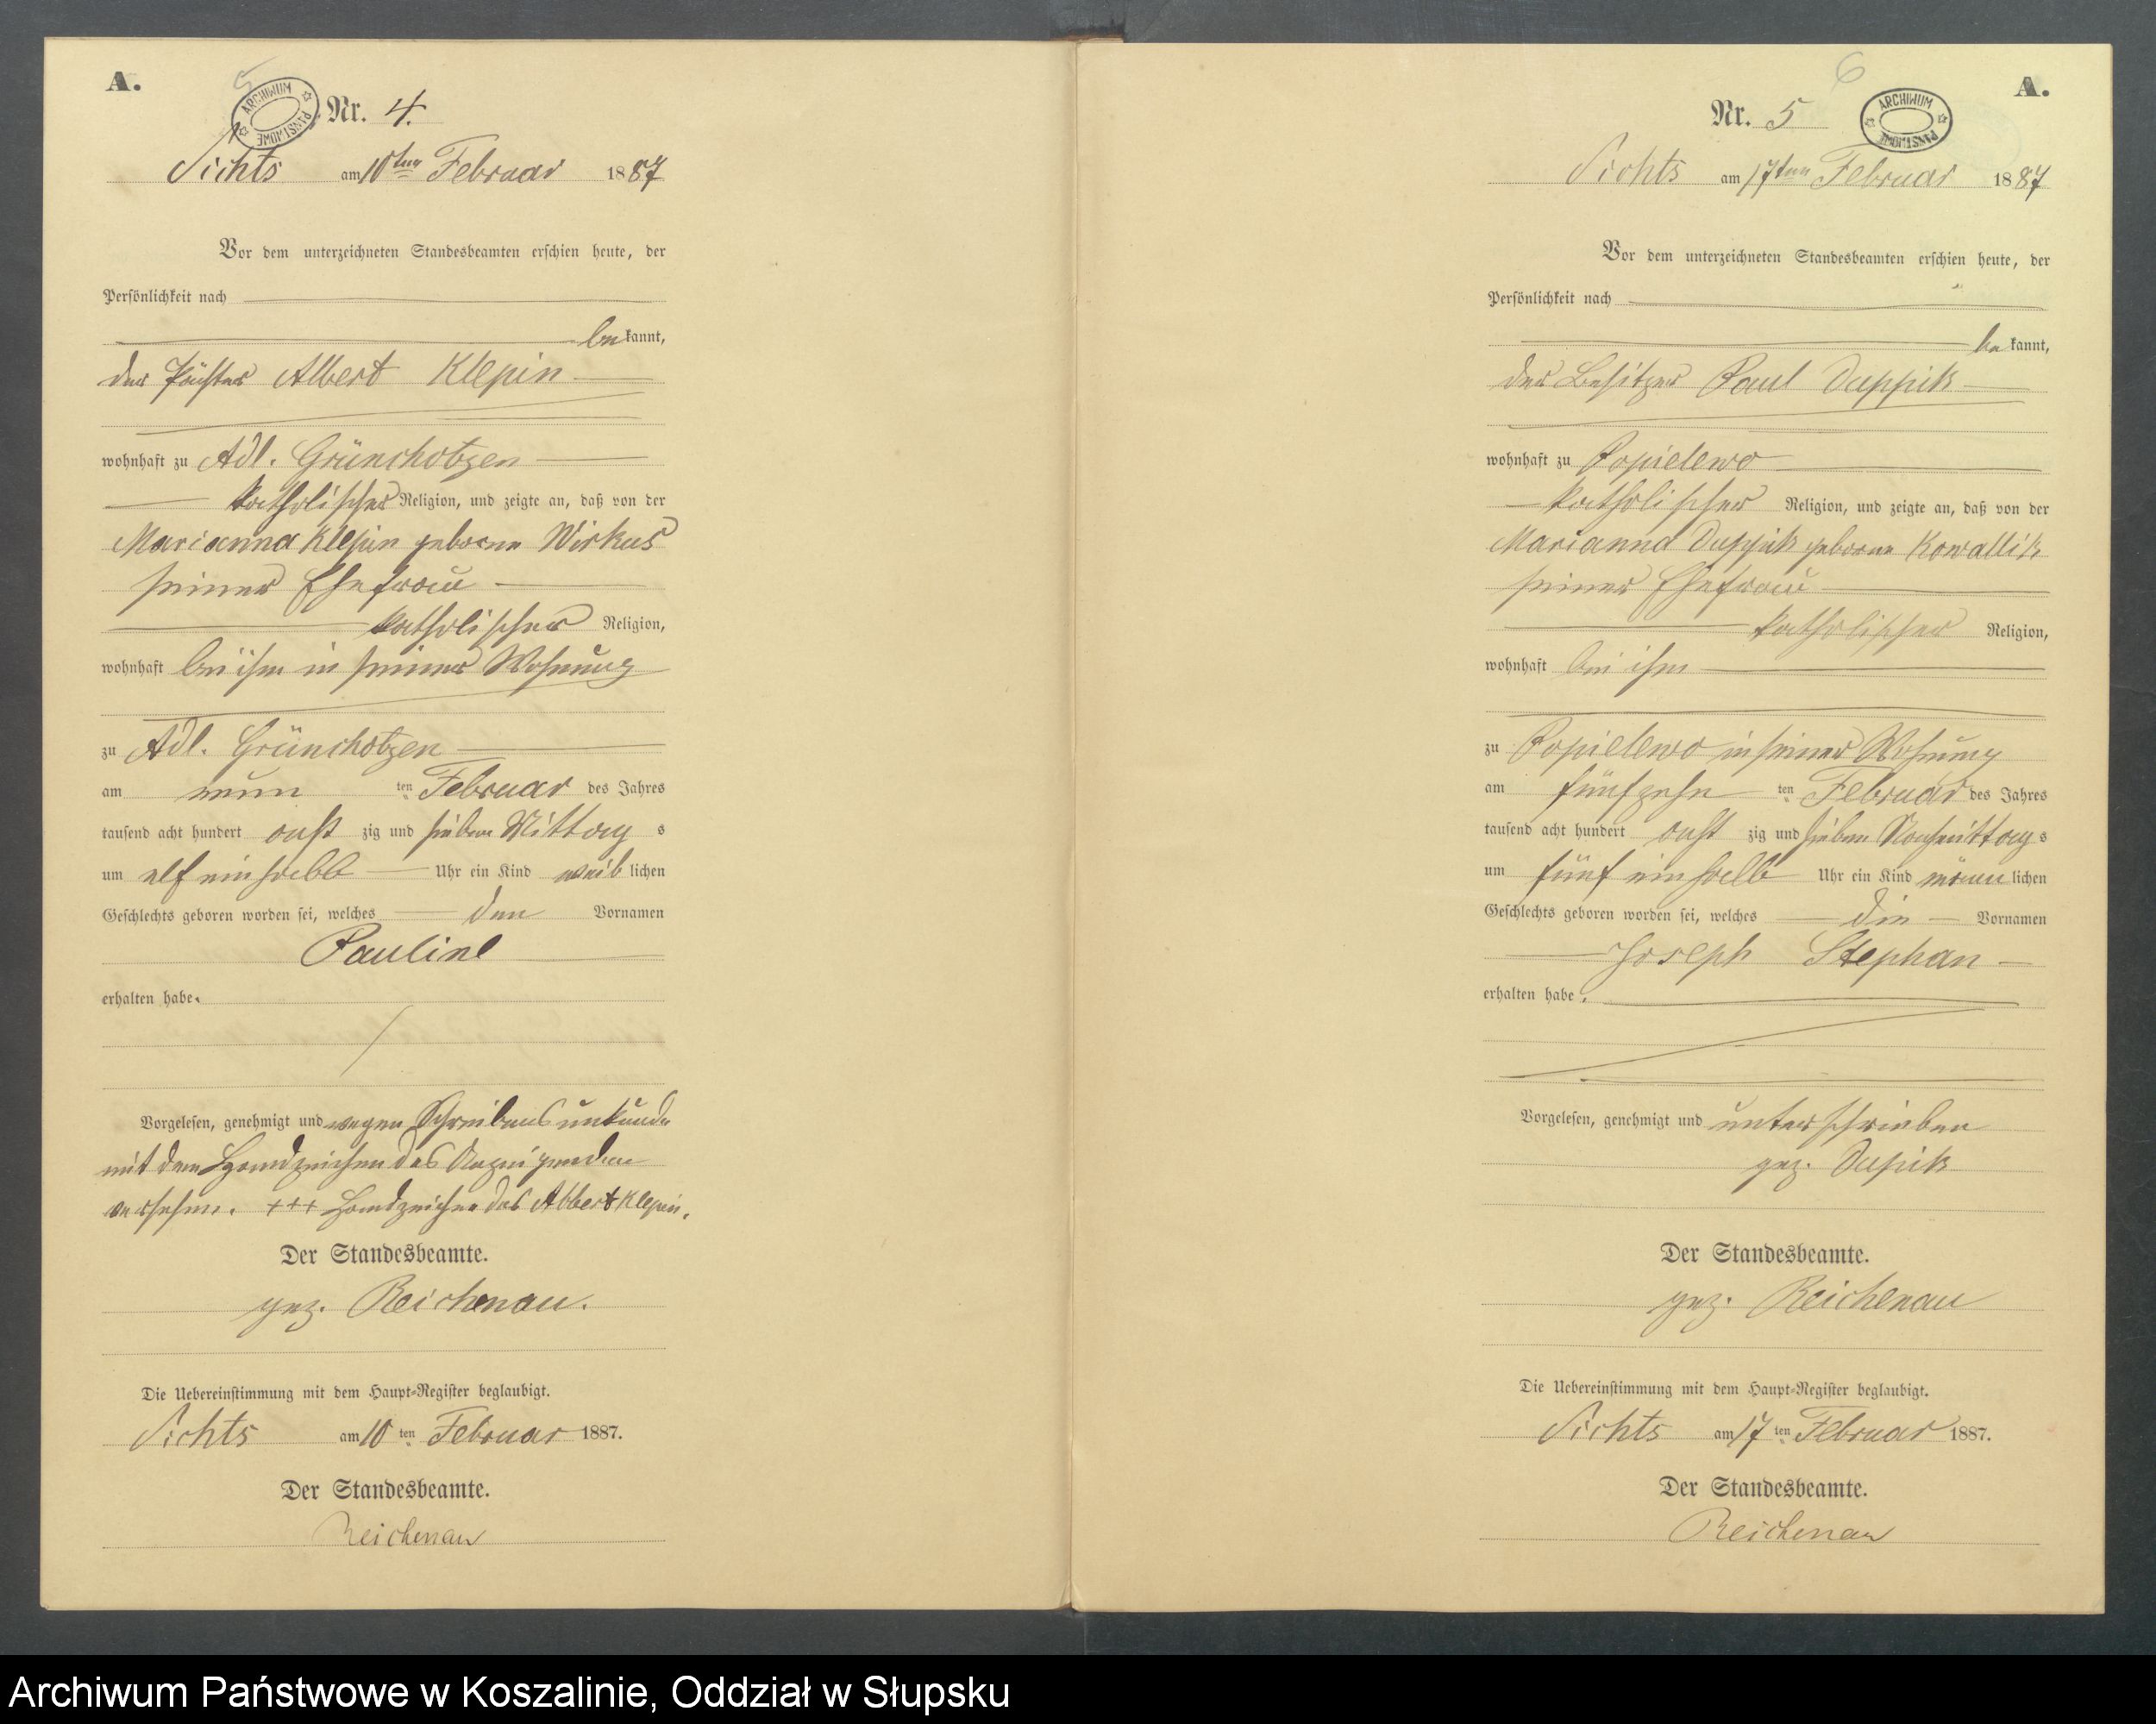 A.
5
ARCHIWUM PAŃSTWOWE
Nr. 4.
Sichts am 10ten Februar 1887
Vor dem unterzeichneten Standesbeamten erschien heute, der
Persönlichkeit nach
bekannt,
der Pächter Albert Klepin
wohnhaft zu Adl. Grünchotzen
katholischer Religion, und zeigte an, daß von der
Marianna Klepin geborne Wirkus
seiner Ehefrau
katholischer Religion,
wohnhaft bei ihm in seiner Wohnung
zu Adl. Grünchotzen
am neun ten Februar des Jahres
tausend acht hundert acht zig und sieben Mittag s
um elf einhalb Uhr ein Kind weib lichen
Geschlechts geboren worden sei, welches den Vornamen
Pauline
erhalten habe.
Vorgelesen, genehmigt und wegen Schreibensunkunde
mit dem Handzeichen des Anzeigenden
versehen. +++ Handzeichen des Albert Klepin.
Der Standesbeamte.
gez. Reichenau.
Die Uebereinstimmung mit dem Haupt-Register beglaubigt.
Sichts am 10 ten Februar 1887.
Der Standesbeamte.
Reichenau
6
A.
Nr. 5
ARCHIWUM PAŃSTWOWE
Sichts am 17ten Februar 1887
Vor dem unterzeichneten Standesbeamten erschien heute, der
Persönlichkeit nach
bekannt,
der Besitzer Paul Duppik
wohnhaft zu Popielewo
katholischer Religion, und zeigte an, daß von der
Marianna Duppik geborne Kowallik
seiner Ehefrau
katholischer Religion,
wohnhaft bei ihm
zu Popielewo in seiner Wohnung
am fünfzehn ten Februar des Jahres
tausend acht hundert acht zig und sieben Nachmittag s
um fünf einhalb Uhr ein Kind männ lichen
Geschlechts geboren worden sei, welches die Vornamen
Joseph Stephan
erhalten habe.
Vorgelesen, genehmigt und unterschrieben
gez. Dupik
Der Standesbeamte.
gez. Reichenau
Die Uebereinstimmung mit dem Haupt-Register beglaubigt.
Sichts am 17 ten Februar 1887.
Der Standesbeamte.
Reichenau
Archiwum Państwowe w Koszalinie, Oddział w Słupsku